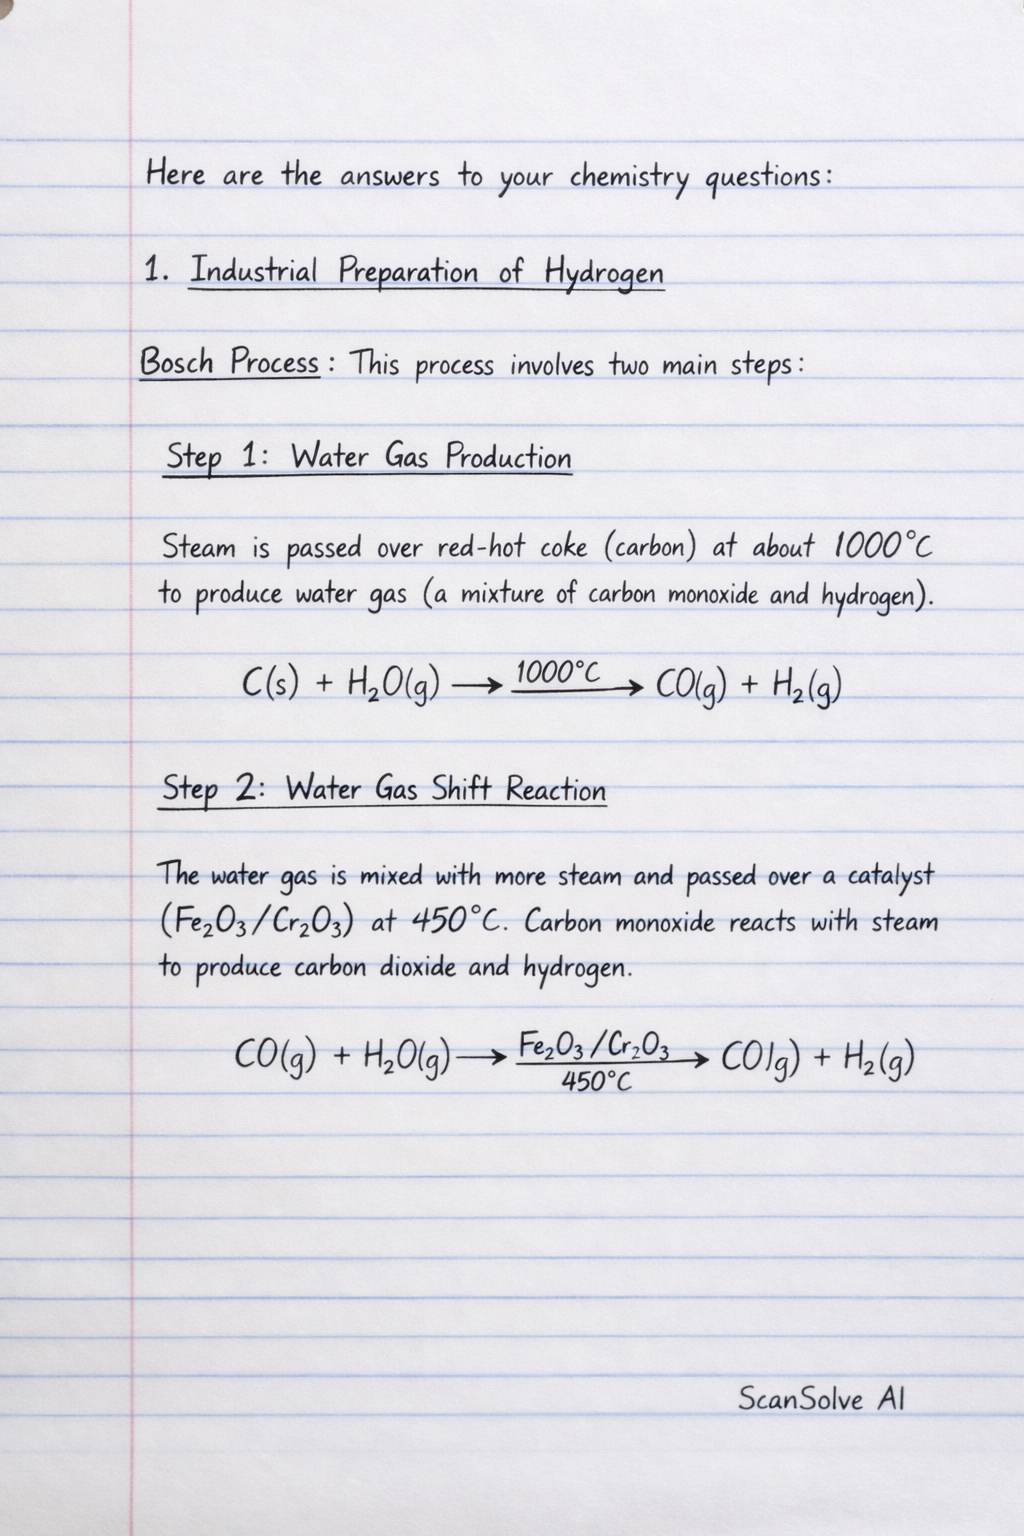 Here are the answers to your chemistry questions:
1. Industrial Preparation of Hydrogen
Bosch Process: This process involves two main steps:
Step 1: Water Gas Production
Steam is passed over red-hot coke (carbon) at about 1000°C
to produce water gas (a mixture of carbon monoxide and hydrogen).
C(s) + H₂O(g) → 1000°C → CO(g) + H₂(g)
Step 2: Water Gas Shift Reaction
The water gas is mixed with more steam and passed over a catalyst
(Fe₂O₃/Cr₂O₃) at 450°C. Carbon monoxide reacts with steam
to produce carbon dioxide and hydrogen.
CO(g) + H₂O(g) → Fe₂O₃/Cr₂O₃ → CO)g) + H₂(g)
450°C
ScanSolve AI